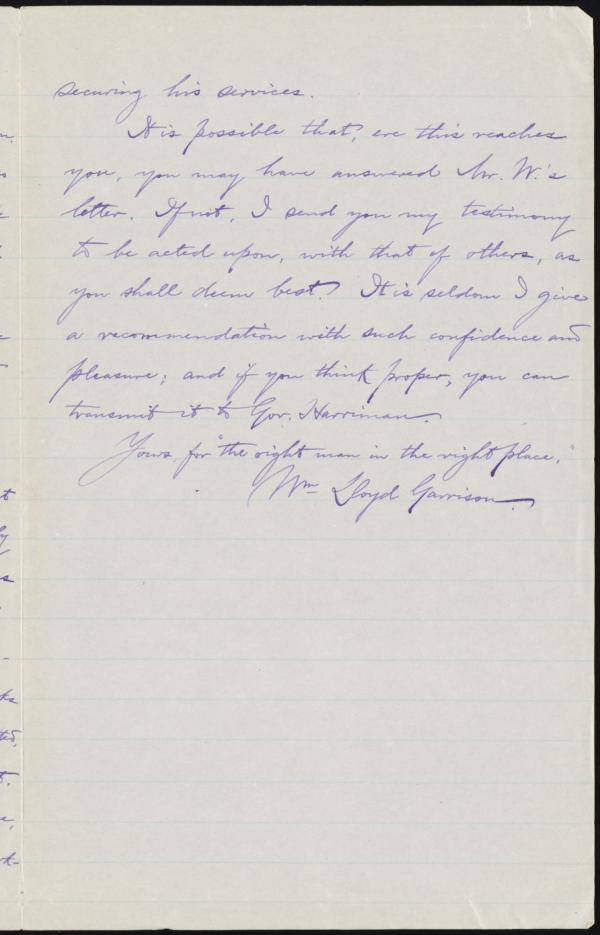 securing his services.
It is possible that, ere this reaches
you, you may have answered Mr. W.'s
letter. If not, I send you my testimony
to be acted upon, with that of others, as
you shall deem best. It is seldom I give
a recommendation with such confidence and
pleasure; and if you think proper, you can
transmit it to Gov. Harriman.
Yours, for "the right man in the right place,"
Wm Lloyd Garrison.